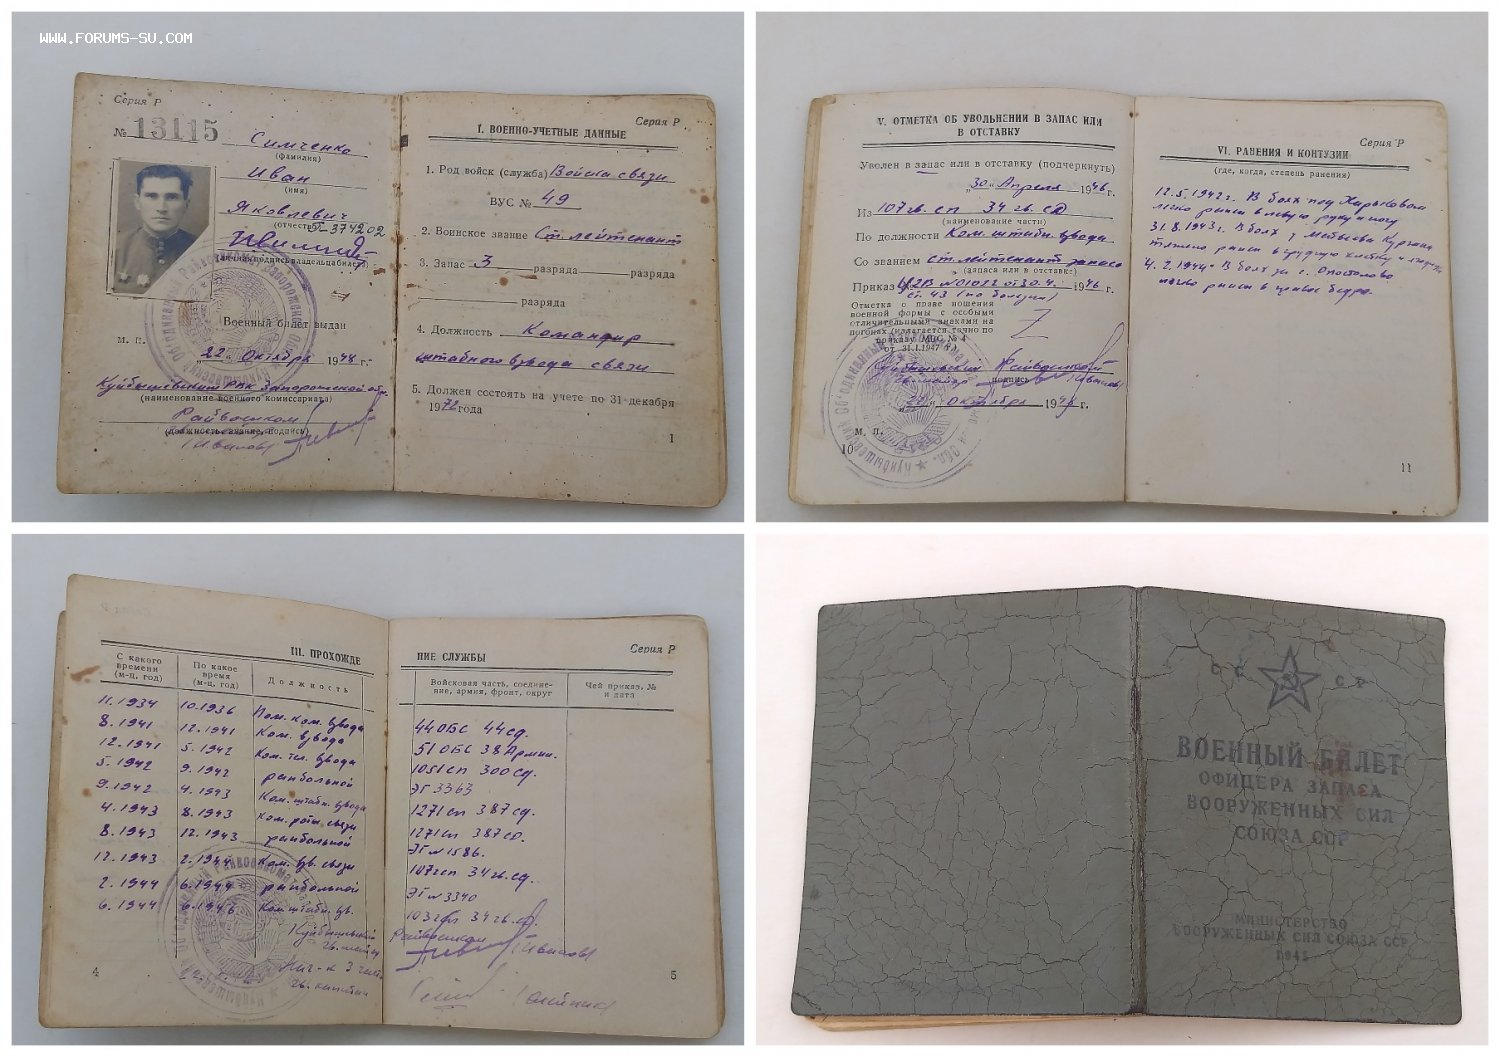 WWW.FORUMS-SU.COM
Серия Р
№ 13115
Симченко
(фамилия)
Иван
(имя)
Яковлевич
(отчество)
374202
(личная подпись владельца билета)
Военный билет выдан
М. П.
„22“ Октября 1948 г.
Куйбышевский РВК Запорожской обл.
(наименование военного комиссариата)
Райвоенком
(должность, звание, подпись)
(Иванов)
Серия Р
I. ВОЕННО-УЧЕТНЫЕ ДАННЫЕ
1. Род войск (служба) Войска связи
ВУС № 49
2. Воинское звание Ст. лейтенант
3. Запас 3 разряда разряда
разряда
4. Должность Командир
штабного взвода связи
5. Должен состоять на учете по 31 декабря
1972 года
1
V. ОТМЕТКА ОБ УВОЛЬНЕНИИ В ЗАПАС ИЛИ
В ОТСТАВКУ
Уволен в запас или в отставку (подчеркнуть)
„30“ Апреля 1946 г.
Из 107 гв. сп 34 гв. сд
(наименование части)
По должности Ком. штабн. взвода
Со званием ст. лейтенант запаса
(запаса или в отставке)
Приказ №01022 от 30.4. 1946 г.
ст. 43 (по болезни)
Отметка о праве ношения
военной формы с особыми
отличительными знаками на
погонах (излагается точно по
приказу МВС № 4
от 31.1.1947 г.)
подпись
(Иванов)
октября 1948 г.
М. П.
10
Серия Р
VI. РАНЕНИЯ И КОНТУЗИИ
(где, когда, степень ранения)
12.5.1942г. В боях под Харьковом
легко ранен в левую руку и ногу
31.8.1943г. В боях у Матвеева Кургана
тяжело ранен в грудную клетку и
4.2.1944г. В боях за с. Апостолово
ранен в бедро.
11
III. ПРОХОЖДЕ
НИЕ СЛУЖБЫ
Серия Р
С какого времени (м-ц, год)
По какое время (м-ц, год)
Должность
Войсковая часть, соединение, армия, фронт, округ
Чей приказ, № и дата
11.1934 10.1936 Пом. ком. взвода 44 ОБС 44 сд.
8.1941 12.1941 Ком. взвода 51 ОБС 38 Армии.
12.1941 5.1942 Ком. тел. взвода 1051 сп 300 сд.
5.1942 9.1942 ранбольной ЭГ 3363
9.1942 4.1943 Ком. штабн. взвода 1271 сп 387 сд.
4.1943 8.1943 Ком. роты связи 1271 сп 387 сд.
8.1943 12.1943 ранбольной ЭГ № 1586.
12.1943 2.1944 Ком. взв. связи 107 гв сп 34 гв. сд.
2.1944 6.1944 ранбольной ЭГ № 3340
6.1944 1946 Ком. штабн. вз. 34 гв. сд.
Куйбышевский Райвоенком
(Иванов)
Нач-к 3 части
гв. капитан
4
5
СССР
ВОЕННЫЙ БИЛЕТ
ОФИЦЕРА ЗАПАСА
ВООРУЖЕННЫХ СИЛ
СОЮЗА ССР
МИНИСТЕРСТВО
ВООРУЖЕННЫХ СИЛ СОЮЗА ССР